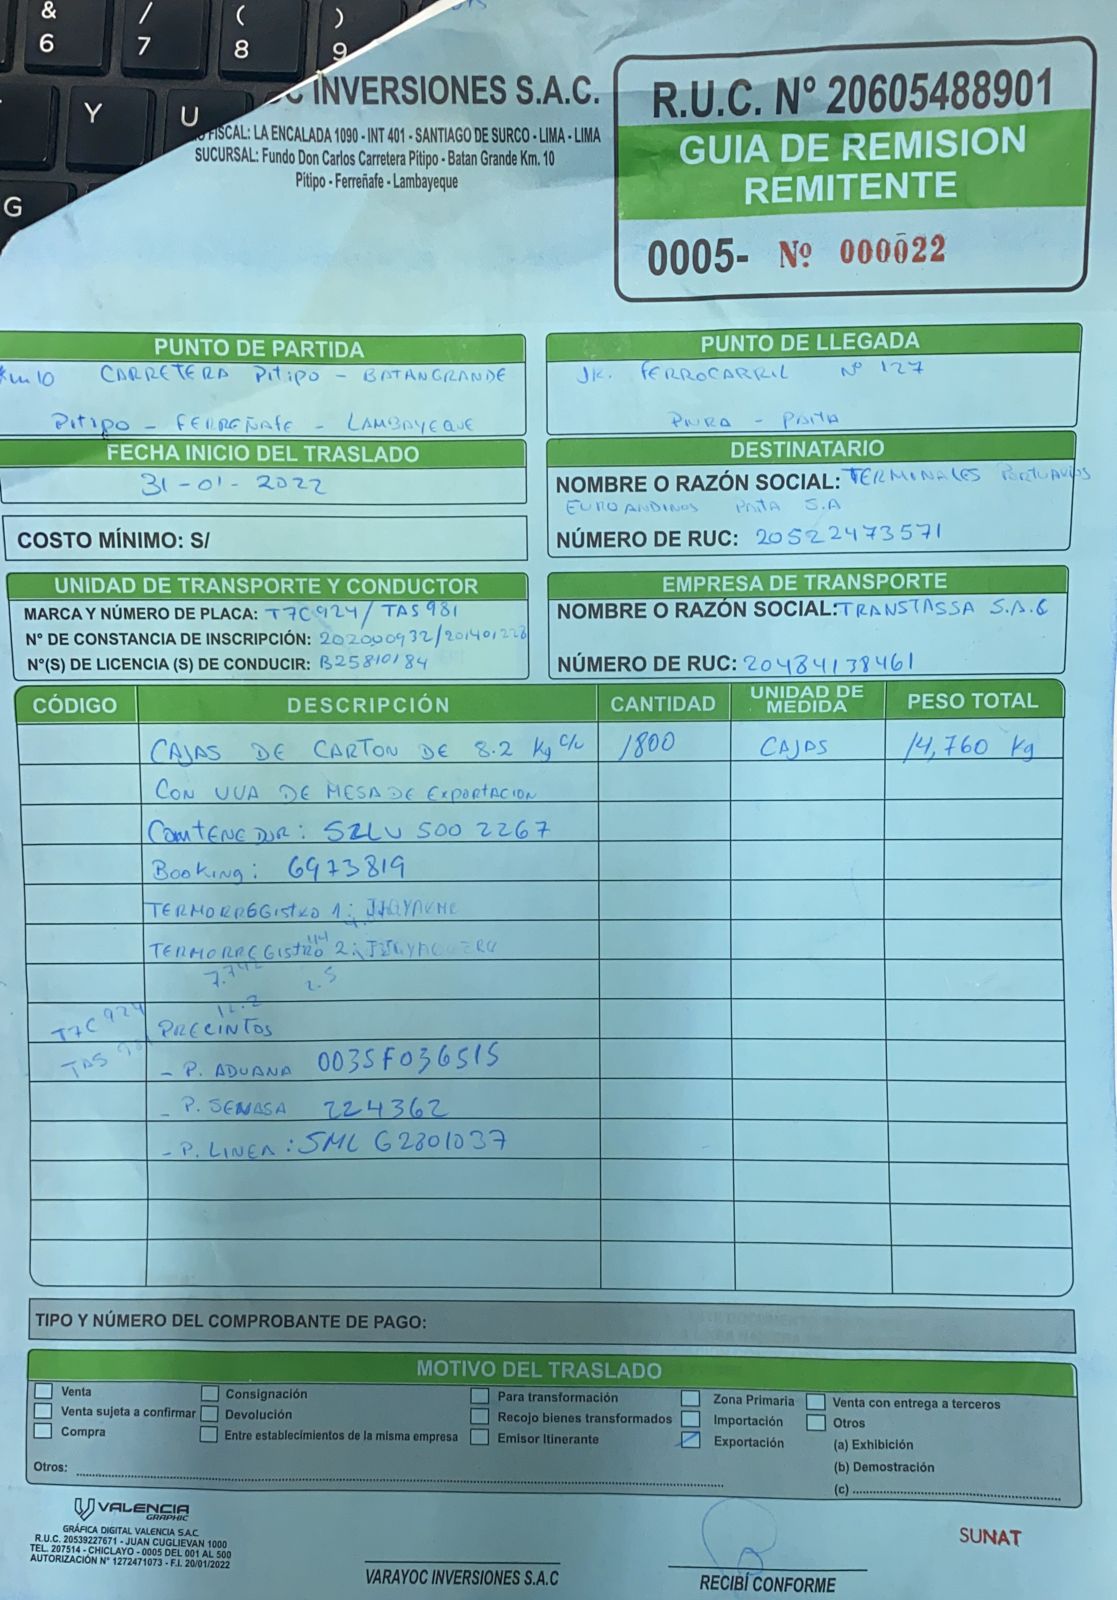 &
6
/
7
(
8
)
9
Y
U
G
INVERSIONES S.A.C.
FISCAL: LA ENCALADA 1090 - INT 401 - SANTIAGO DE SURCO - LIMA - LIMA
SUCURSAL: Fundo Don Carlos Carretera Pitipo - Batan Grande Km. 10
Pitipo - Ferreñafe - Lambayeque
R.U.C. Nº 20605488901
GUIA DE REMISION
REMITENTE
0005- Nº 000022
PUNTO DE PARTIDA
Km 10 CARRETERA PITIPO - BATANGRANDE
PITIPO - FERREÑAFE - LAMBAYEQUE
PUNTO DE LLEGADA
JR. FERROCARRIL Nº 127
PIURA - PAITA
FECHA INICIO DEL TRASLADO
31-01-2022
COSTO MÍNIMO: S/
DESTINATARIO
NOMBRE O RAZÓN SOCIAL: TERMINALES PORTUARIOS
EUROANDINOS PAITA S.A
NÚMERO DE RUC: 20522473571
UNIDAD DE TRANSPORTE Y CONDUCTOR
MARCA Y NÚMERO DE PLACA: T7C924/TAS981
N° DE CONSTANCIA DE INSCRIPCIÓN:
N°(S) DE LICENCIA (S) DE CONDUCIR: B25810184
EMPRESA DE TRANSPORTE
NOMBRE O RAZÓN SOCIAL: TRANSTASSA S.A.C
NÚMERO DE RUC: 20484138461
CÓDIGO DESCRIPCIÓN CANTIDAD UNIDAD DE MEDIDA PESO TOTAL
CAJAS DE CARTON DE 8.2 Kg c/u 1800 CAJAS 14,760 Kg
CON UVA DE MESA DE EXPORTACION
CONTENEDOR: SZLU 500 2267
BOOKING: 6973819
TERMORREGISTRO 1:
TERMORREGISTRO 2:
2.5
12.2
T7C 924 PRECINTOS
TAS
- P. ADUANA 0035F036515
- P. SENASA 224362
- P. LINEA: SML G2801037
TIPO Y NÚMERO DEL COMPROBANTE DE PAGO:
MOTIVO DEL TRASLADO
Venta Consignación Para transformación Zona Primaria Venta con entrega a terceros
Venta sujeta a confirmar Devolución Recojo bienes transformados Importación Otros
Compra Entre establecimientos de la misma empresa Emisor Itinerante Exportación (a) Exhibición
(b) Demostración
Otros: (c)
VALENCIA
GRAPHIC
GRÁFICA DIGITAL VALENCIA S.A.C.
R.U.C. 20539227671 - JUAN CUGLIEVAN 1000
TEL. 207514 - CHICLAYO - 0005 DEL 001 AL 500
AUTORIZACIÓN N° 1272471073 - F.I. 20/01/2022
VARAYOC INVERSIONES S.A.C
RECIBÍ CONFORME
SUNAT